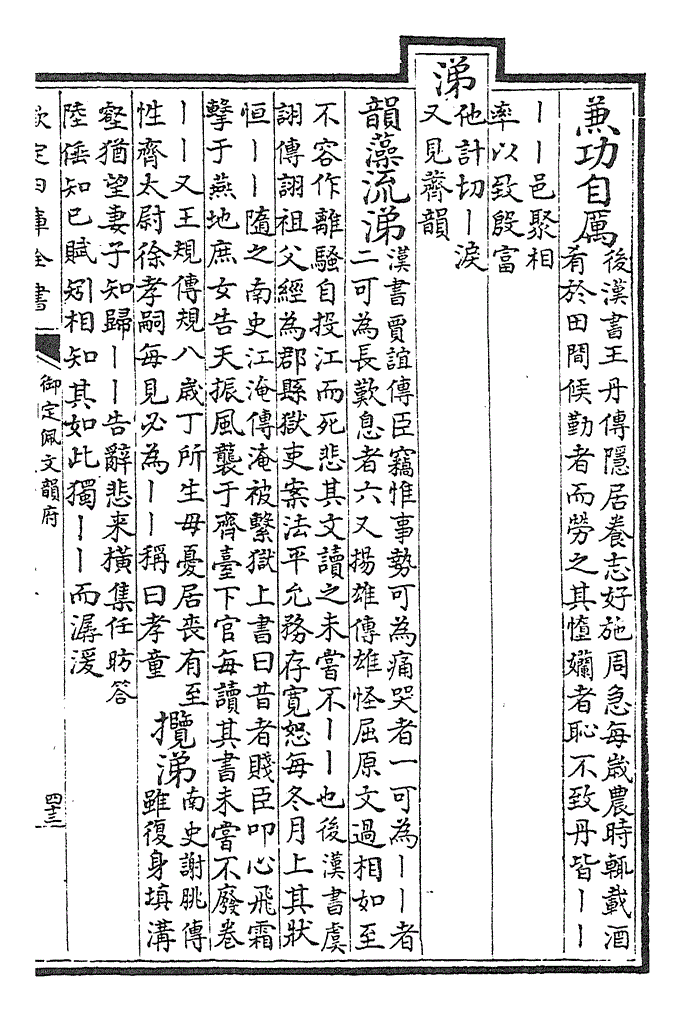 兼功自厲
後漢書王丹傳隱居養志好施周急每歳農時輒載酒
肴於田間候勤者而勞之其惰孏者恥不致丹皆丨丨
丨丨邑聚相
率以致殷富
涕
他計切丨淚
又見薺韻
韻藻流涕
漢書賈誼傳臣竊惟事勢可為痛哭者一可為丨丨者
二可為長歎息者六又揚雄傳雄怪屈原文過相如至
不容作離騷自投江而死悲其文讀之未嘗不丨丨也後漢書虞
詡傳詡祖父經為郡縣獄吏案法平允務存寛恕每冬月上其狀
恒丨丨隨之南史江淹傳淹被繫獄上書曰昔者賤臣叩心飛霜
擊于燕地庶女告天振風襲于齊臺下官每讀其書未嘗不廢卷
丨丨又王規傳規八歳丁所生母憂居喪有至
性齊太尉徐孝嗣每見必為丨丨稱曰孝童
攬涕
南史謝朓傳
雖復身填溝
壑猶望妻子知歸丨丨告辭悲来橫集任昉答
陸倕知己賦矧相知其如此獨丨丨而潺湲
欽定四庫全書
御定佩文韻府
四十三